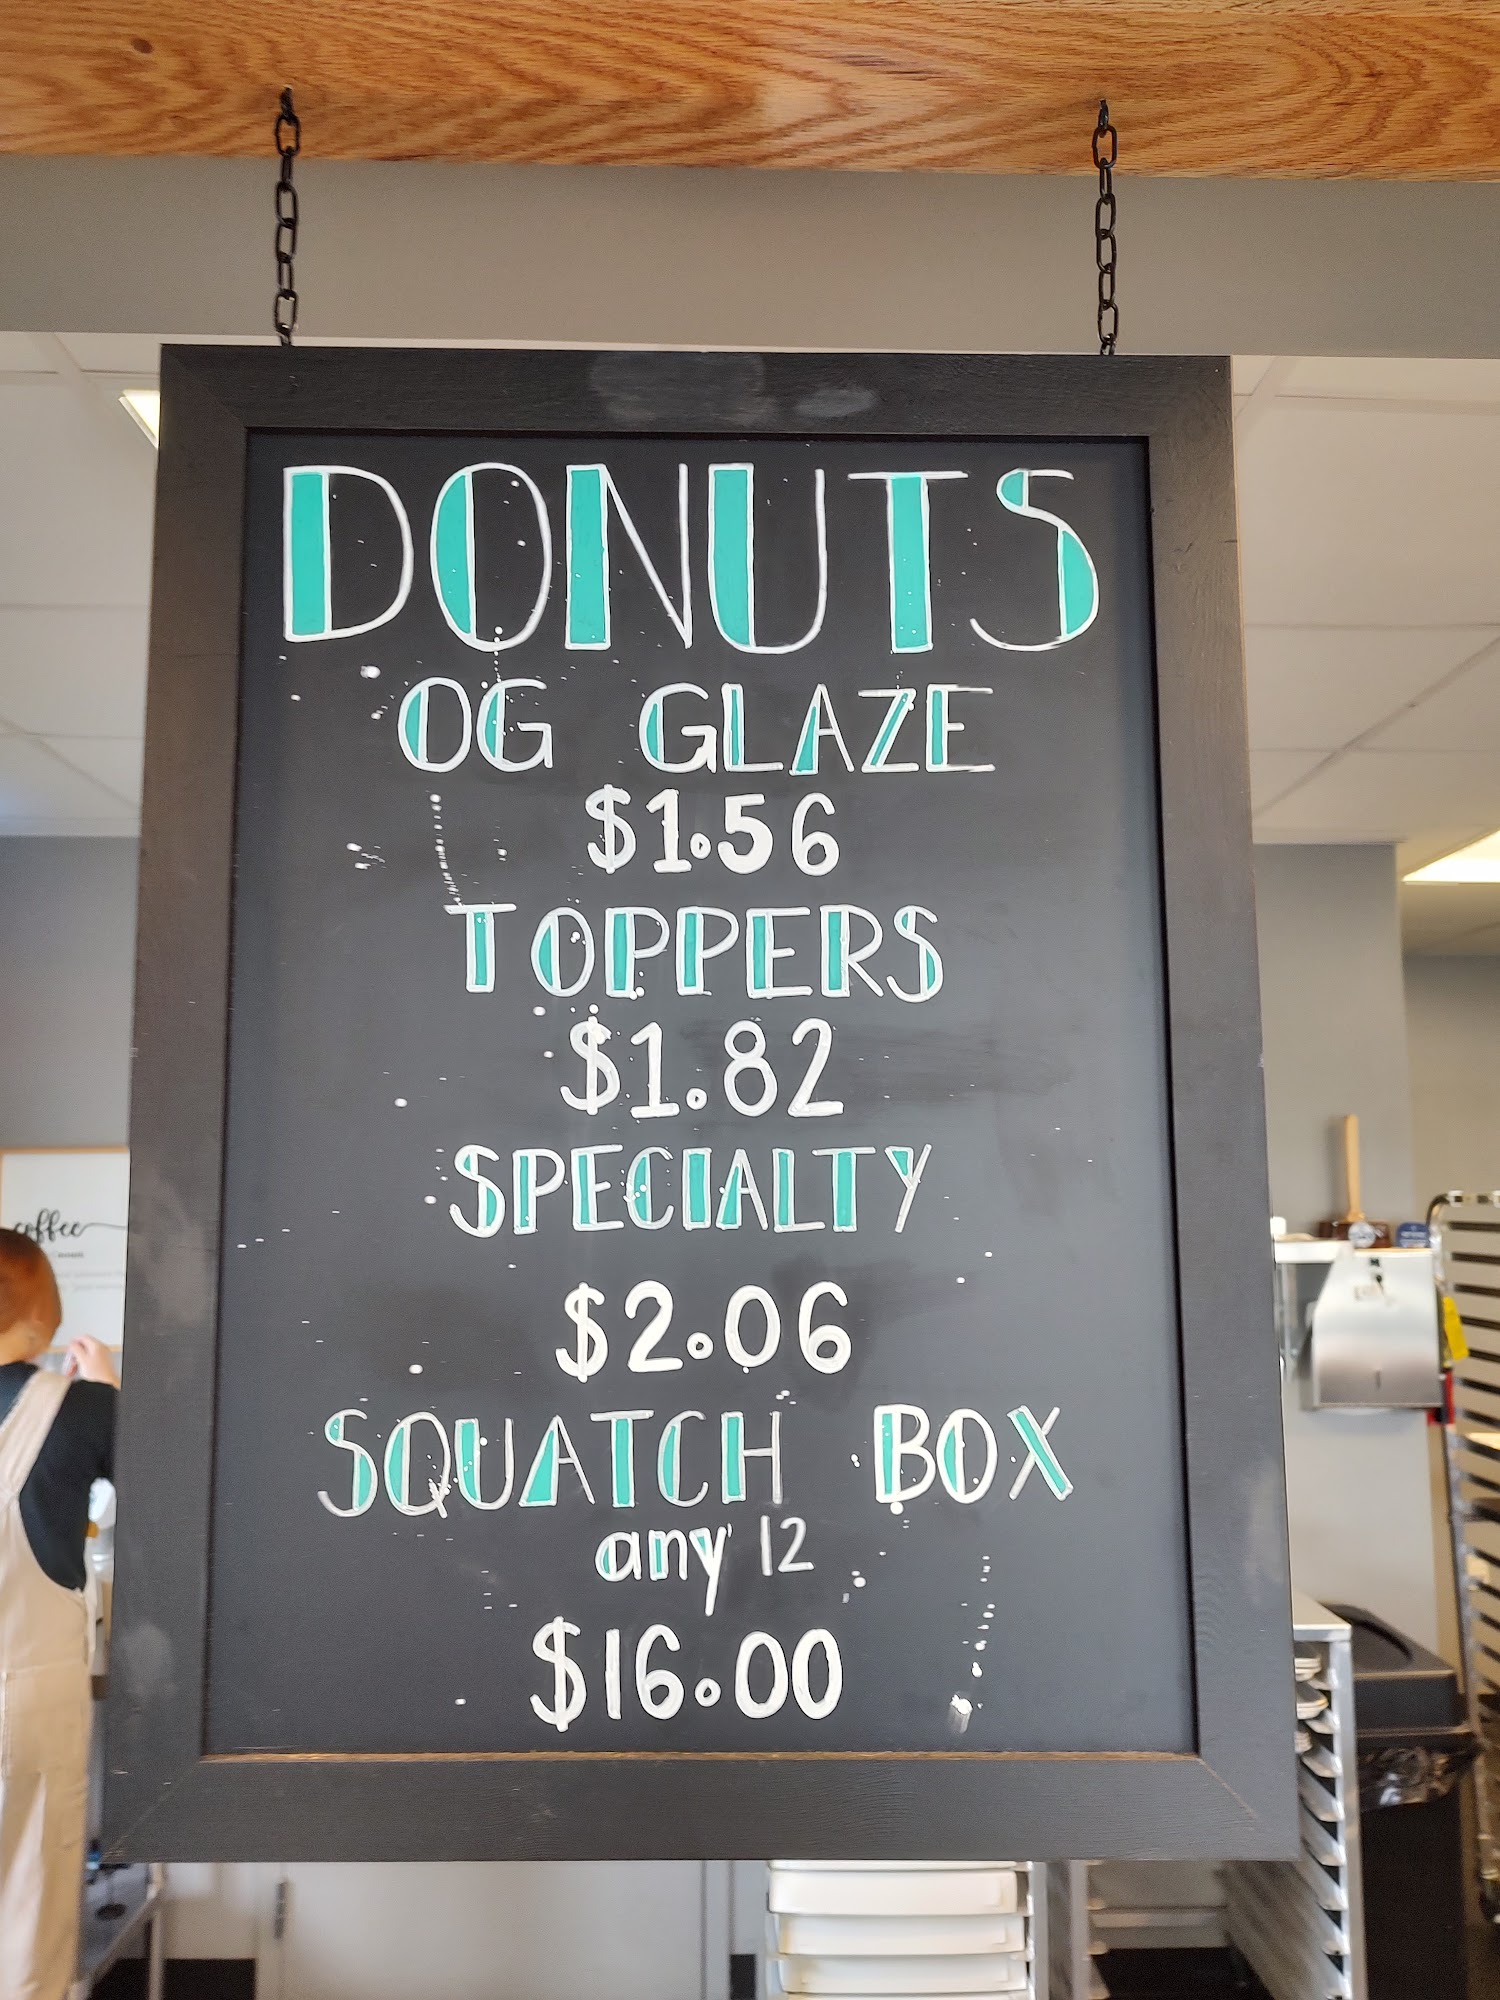 DONUTS
OG GLAZE
$1.56
TOPPERS
$1.82
SPECIALTY
$2.06
SQUATCH BOX
any 12
$16.00
coffee